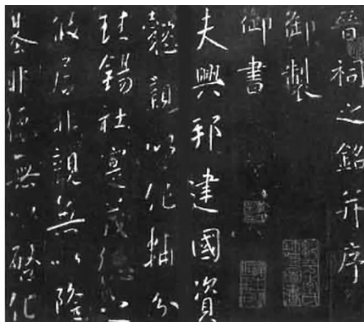 晉祠之銘并序
御製
御書
夫興邦建國資
懿親以作輔分
珪錫社實茂德之
攸居非親無以隆
基非德無以啓化